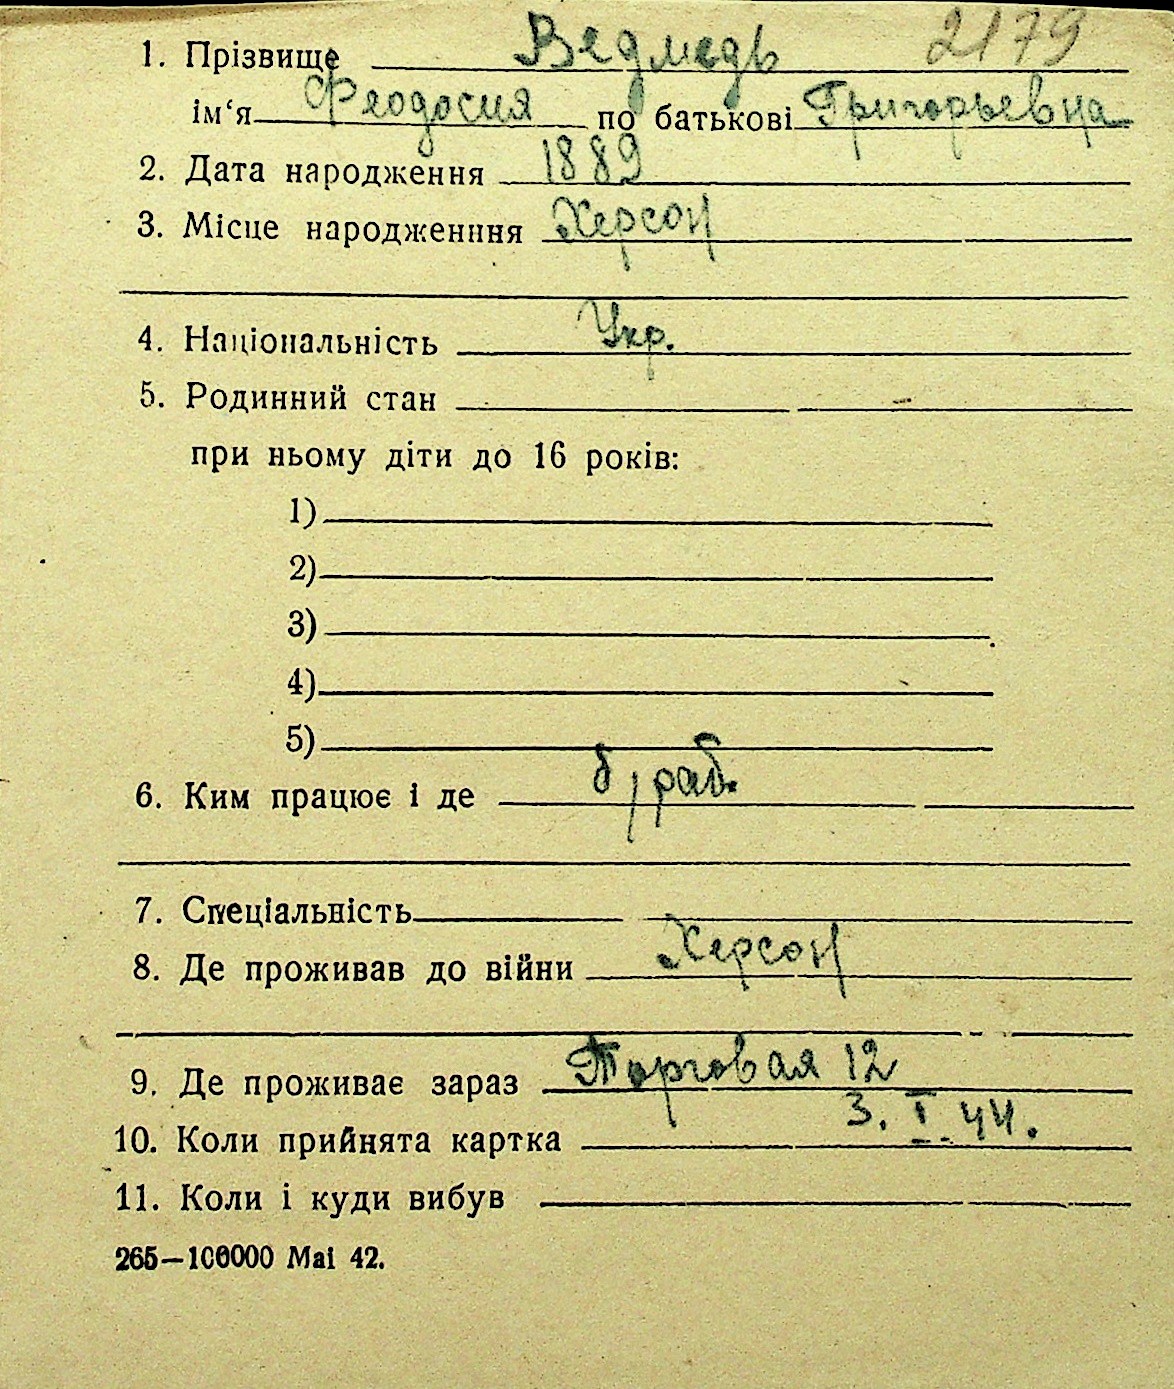 1. Прізвище Ведмедь 2179
ім‘я Феодосия по батькові Григорьевна
2. Дата народження 1889
3. Місце народженння Херсон
4. Національність Укр.
5. Родинний стан –
при ньому діти до 16 років:
1)
2)
3)
4)
5)
6. Ким працює і де б/раб.
7. Спеціальність
8. Де проживав до війни Херсон
9. Де проживає зараз Торговая 12
10. Коли прийнята картка 3. I. 44.
11. Коли і куди вибув
265—100000 Mai 42.